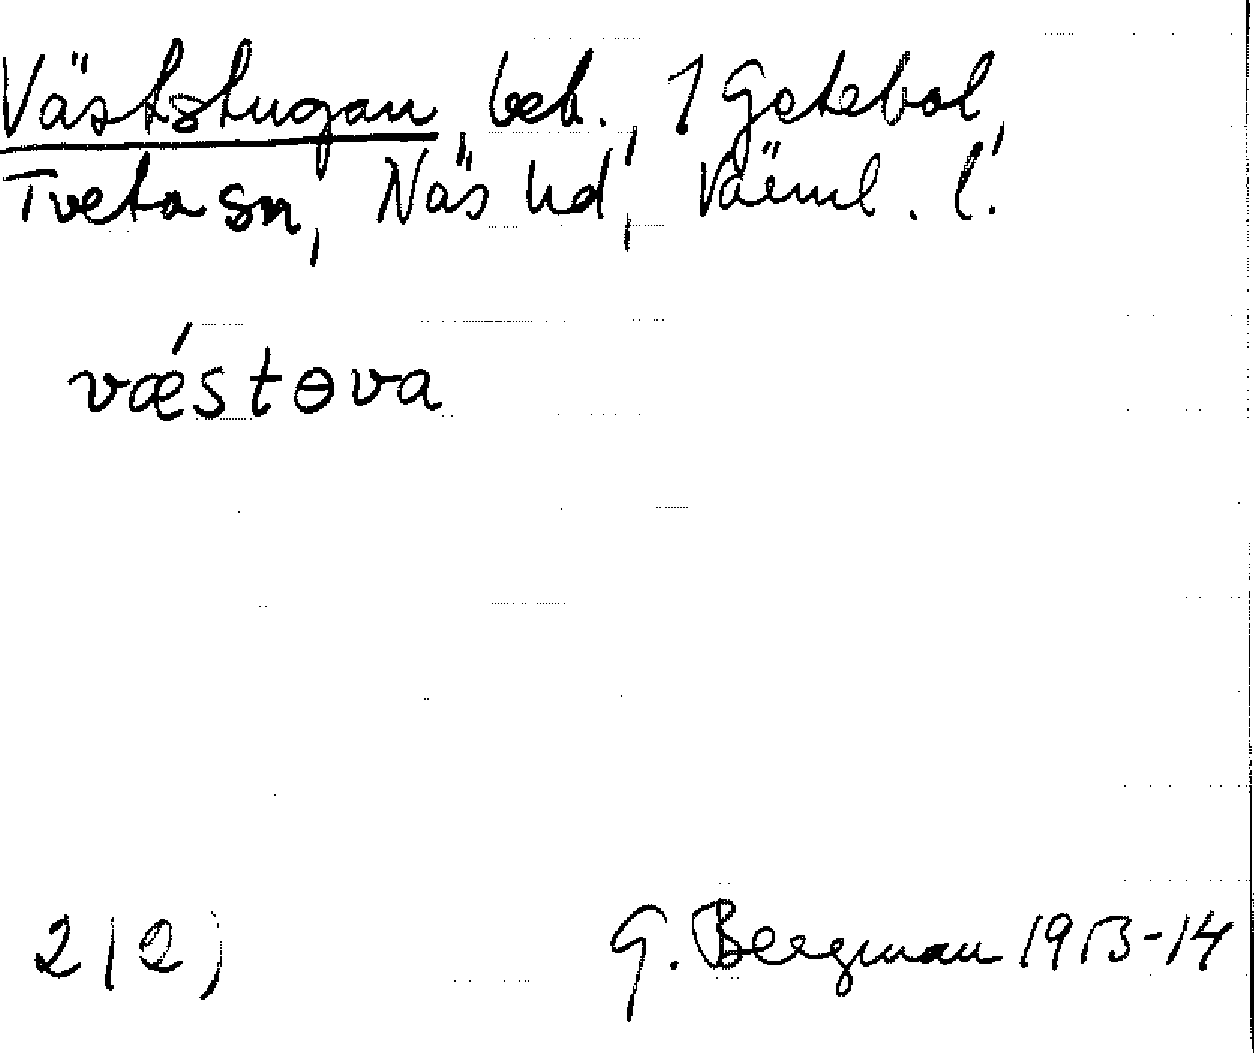 Väststugan, beb., 1 Getebol,
Tveta sn, Näs hd, Värml. l.
vǽstɵva
2(2)
G. Bergman 1913-14